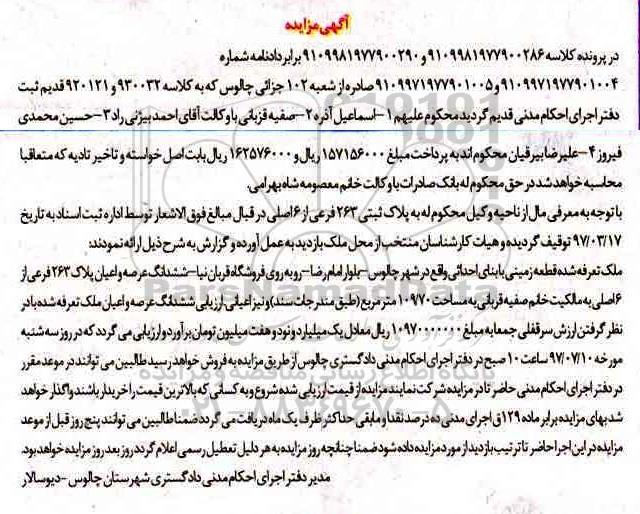 آگهی مزایده
در پرونده کلاسه ۹۱۰۹۹۸۱۹۷۷۹۰۰۲۸۶ و ۹۱۰۹۹۸۱۹۷۷۹۰۰۲۹۰ برابر دادنامه شماره
۹۱۰۹۹۷۱۹۷۷۹۰۱۰۰۴ و ۹۱۰۹۹۷۱۹۷۷۹۰۱۰۰۵ صادره از شعبه ۱۰۲ جزائی چالوس که به کلاسه ۹۳۰۰۳۲ و ۹۲۰۱۲۱ قدیم ثبت
دفتر اجرای احکام مدنی قدیم گردید محکوم علیهم ۱-اسماعیل آذره ۲-صفیه قربانی با وکالت آقای احمد بیژنی راد ۳-حسین محمدی
فیروز ۴-علیرضا بیرقیان محکوم اند به پرداخت مبلغ ۱۵۷۱۵۶۰۰۰ ریال و ۱۶۲۵۷۶۰۰۰ ریال بابت اصل خواسته و تاخیر تادیه که متعاقبا
محاسبه خواهد شد در حق محکوم له بانک صادرات با وکالت خانم معصومه شاه بهرامی.
با توجه به معرفی مال از ناحیه وکیل محکوم له به پلاک ثبتی ۲۶۳ فرعی از ۶ اصلی در قبال مبالغ فوق الاشعار توسط اداره ثبت اسناد به تاریخ
۹۷/۰۳/۱۷ توقیف گردیده و هیات کارشناسان منتخب از محل ملک بازدید به عمل آورده و گزارش به شرح ذیل ارائه نمودند:
ملک تعرفه شده قطعه زمینی با بنای احداثی واقع در شهر چالوس-بلوار امام رضا-روبه روی فروشگاه قربان نیا-ششدانگ عرصه و اعیان پلاک ۲۶۳ فرعی از
۶ اصلی به مالکیت خانم صفیه قربانی به مساحت ۱۰۹/۷۰ متر مربع (طبق مندرجات سند) و نیز اعیانی ارزیابی ششدانگ عرصه و اعیان ملک تعرفه شده با در
نظر گرفتن ارزش سرقفلی جمعا به مبلغ ۱۰۹۷۰۰۰۰۰۰۰ ریال معادل یک میلیارد و نود و هفت میلیون تومان برآورد و ارزیابی می گردد که در روز سه شنبه
مورخه ۹۷/۰۷/۱۰ ساعت ۱۰ صبح در دفتر اجرای احکام مدنی دادگستری چالوس از طریق مزایده به فروش خواهد رسید طالبین می توانند در موعد مقرر
در دفتر اجرای احکام مدنی حاضر تا در مزایده شرکت نمایند مزایده از قیمت ارزیابی شده شروع و به کسانی که بالاترین قیمت را خریدار باشند واگذار خواهد
شد بهای مزایده برابر ماده ۱۲۹ ق اجرای مدنی ده درصد نقد و مابقی حداکثر ظرف یک ماه دریافت می گردد ضمنا طالبین می توانند پنج روز قبل از موعد
مزایده در این اجرا حاضر تا ترتیب بازدید از مورد مزایده داده شود ضمنا چنانچه روز مزایده به هر دلیل تعطیل رسمی اعلام گردد روز بعد روز مزایده خواهد بود.
مدیر دفتر اجرای احکام مدنی دادگستری شهرستان چالوس -دیوسالار
ParsNamadData
پایگاه اطلاع رسانی مناقصه و مزایده
۰۲۱-۸۸۳۴۹۶۷۰-۵